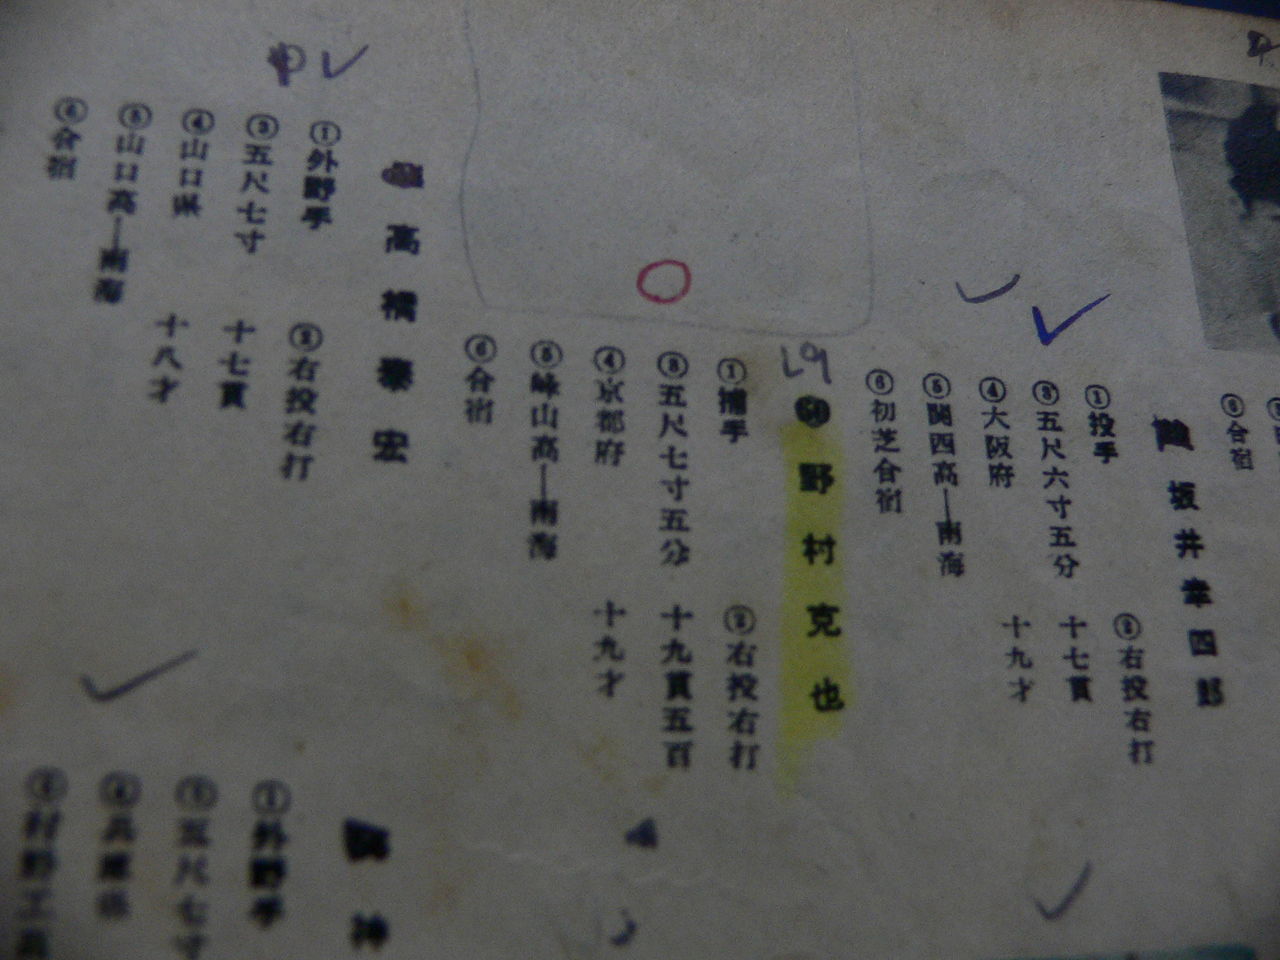 合宿
坂井幸四郎
①投手
②右投右打
③五尺六寸五分
十七貫
④大阪府
十九才
⑤関西高―南海
⑥初芝合宿
L9
野村克也
①捕手
②右投右打
③五尺七寸五分
十九貫五百
④京都府
十九才
⑤峰山高―南海
⑥合宿
高橋泰宏
①外野手
②右投右打
③五尺七寸
十七貫
④山口県
十八才
⑤山口高―南海
⑥合宿
①外野手
③五尺七寸
④兵庫県